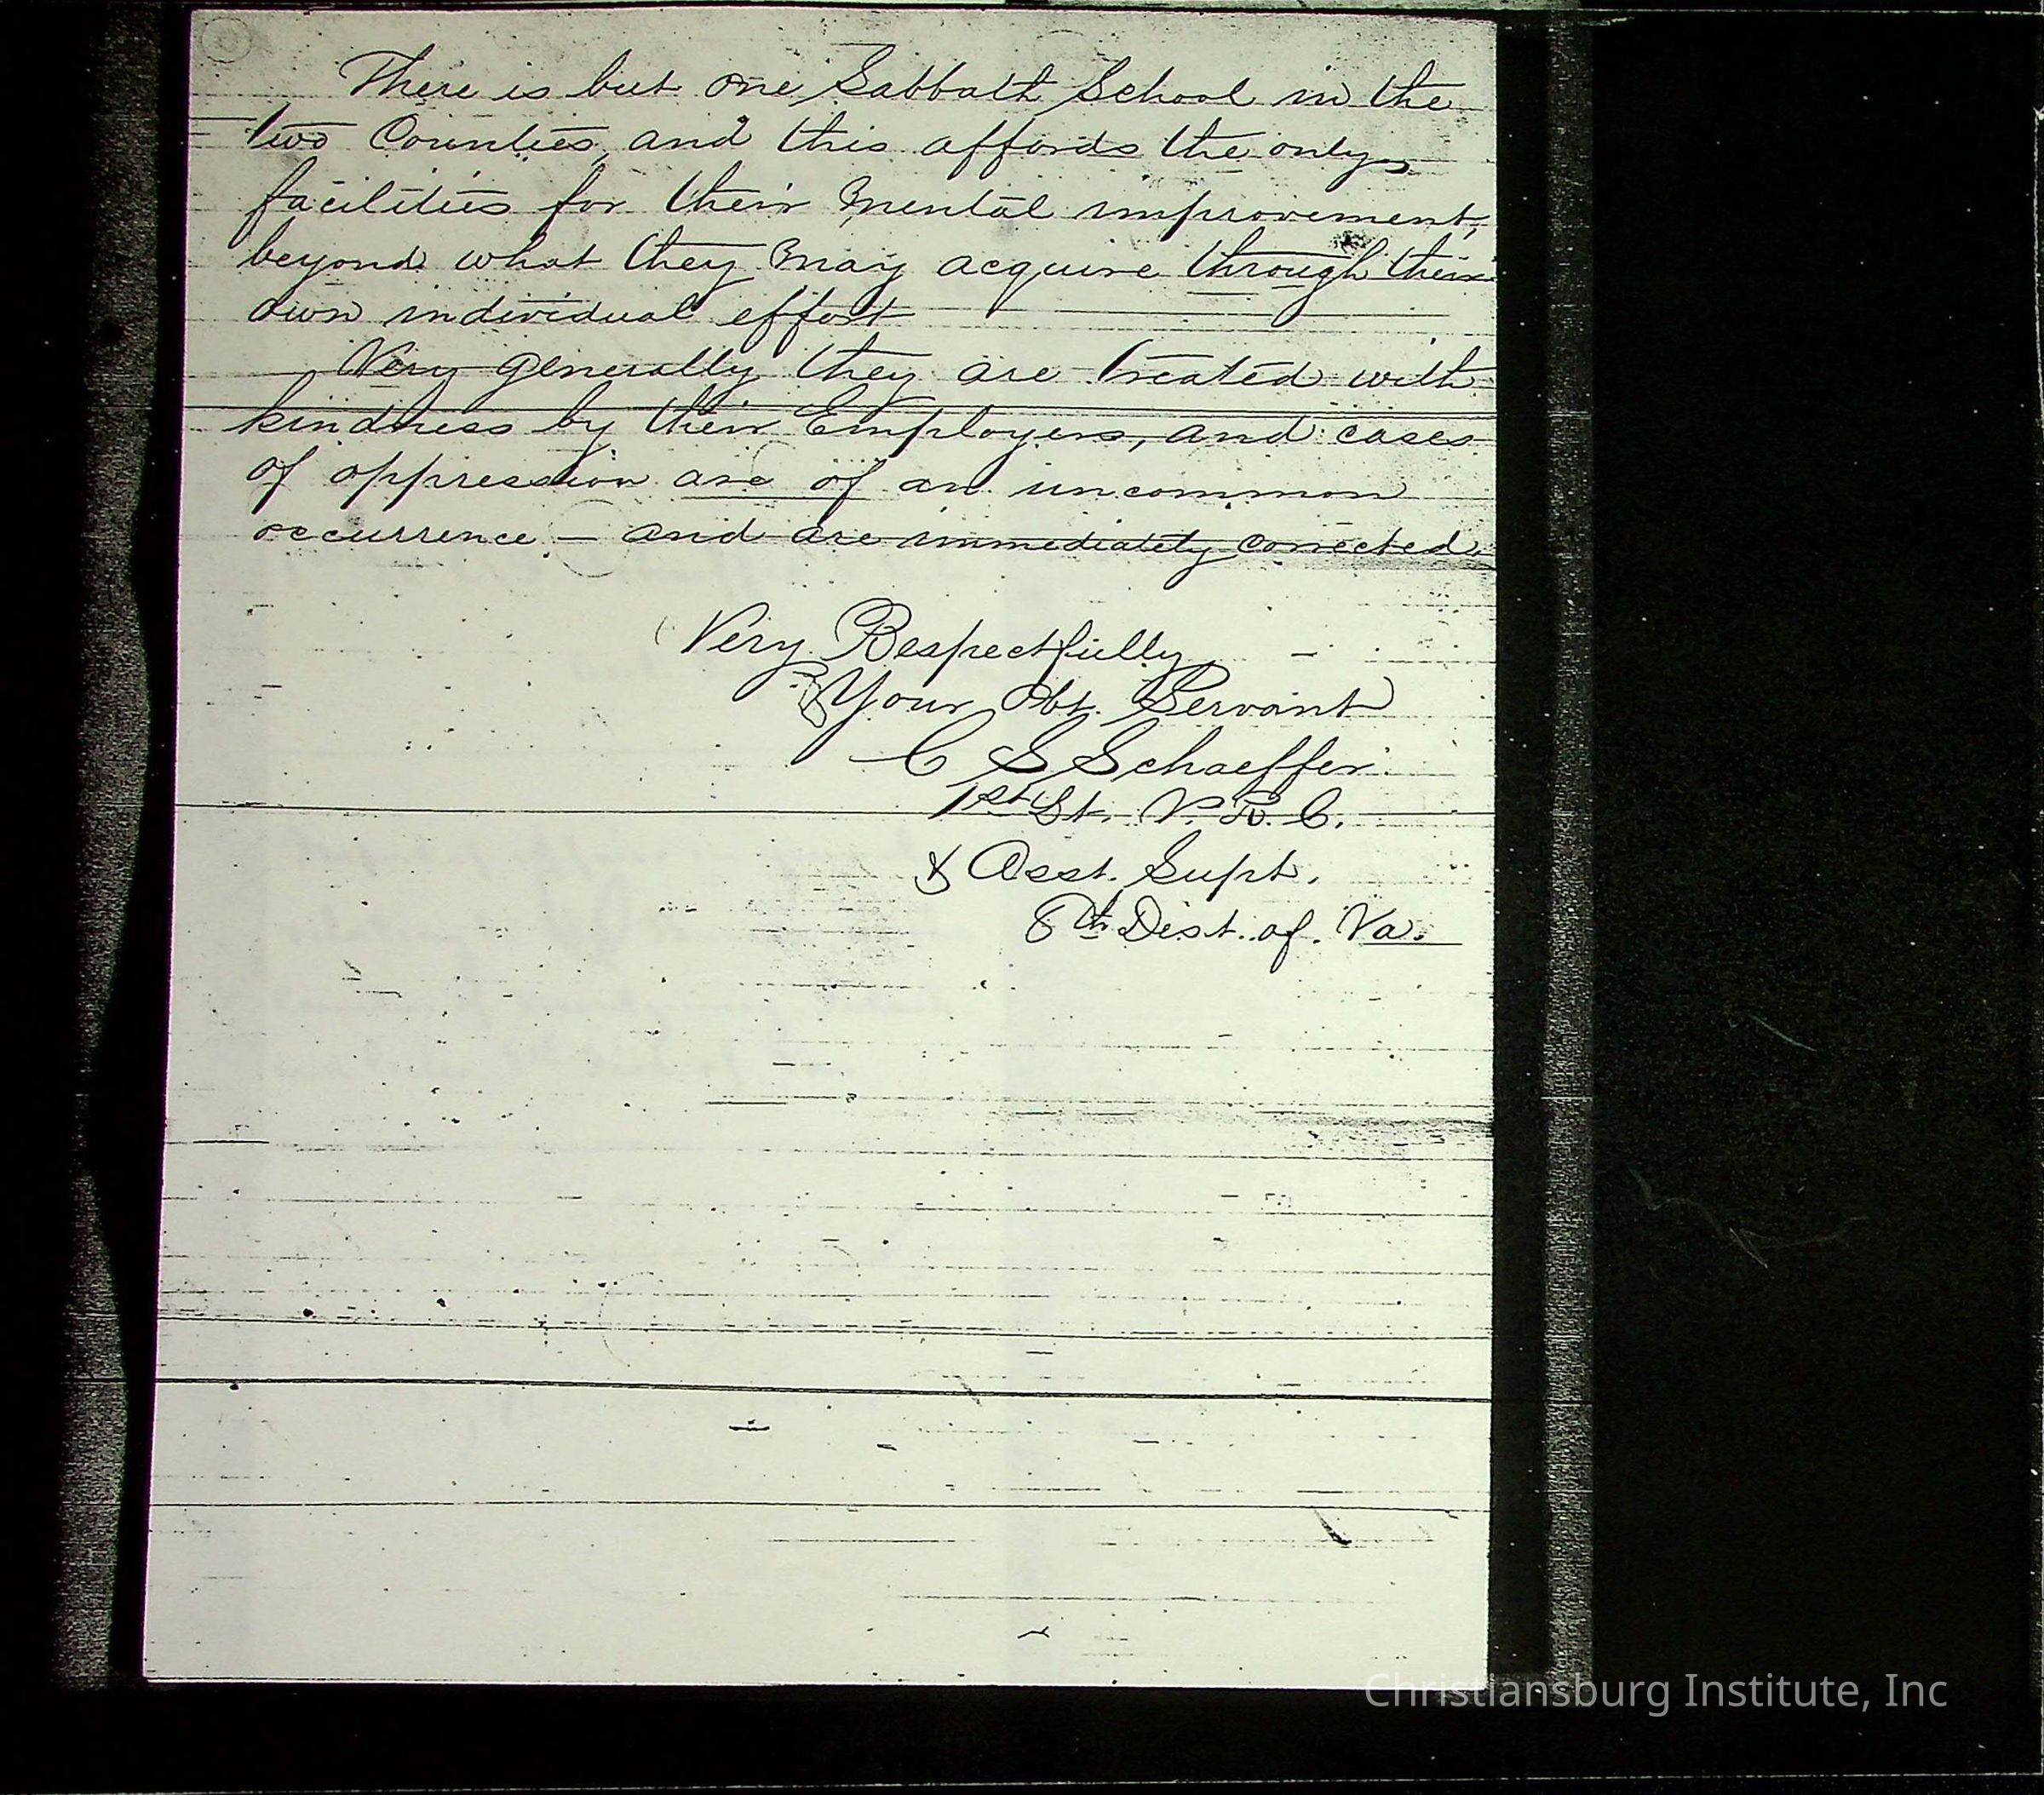 There is but one Sabbath School in the
two Counties, and this affords the only
facilities for their mental improvement,
beyond what they may acquire through their
own individual effort
Very generally they are treated with
kindness by their Employers, and cases
of oppression are of an uncommon
occurrence – and are immediately corrected.
Very Respectfully
Your Obt. Servant
C S Schaeffer
1st Lt. V. R. C.
& Asst. Supt.
8th Dist. of. Va.
Christiansburg Institute, Inc